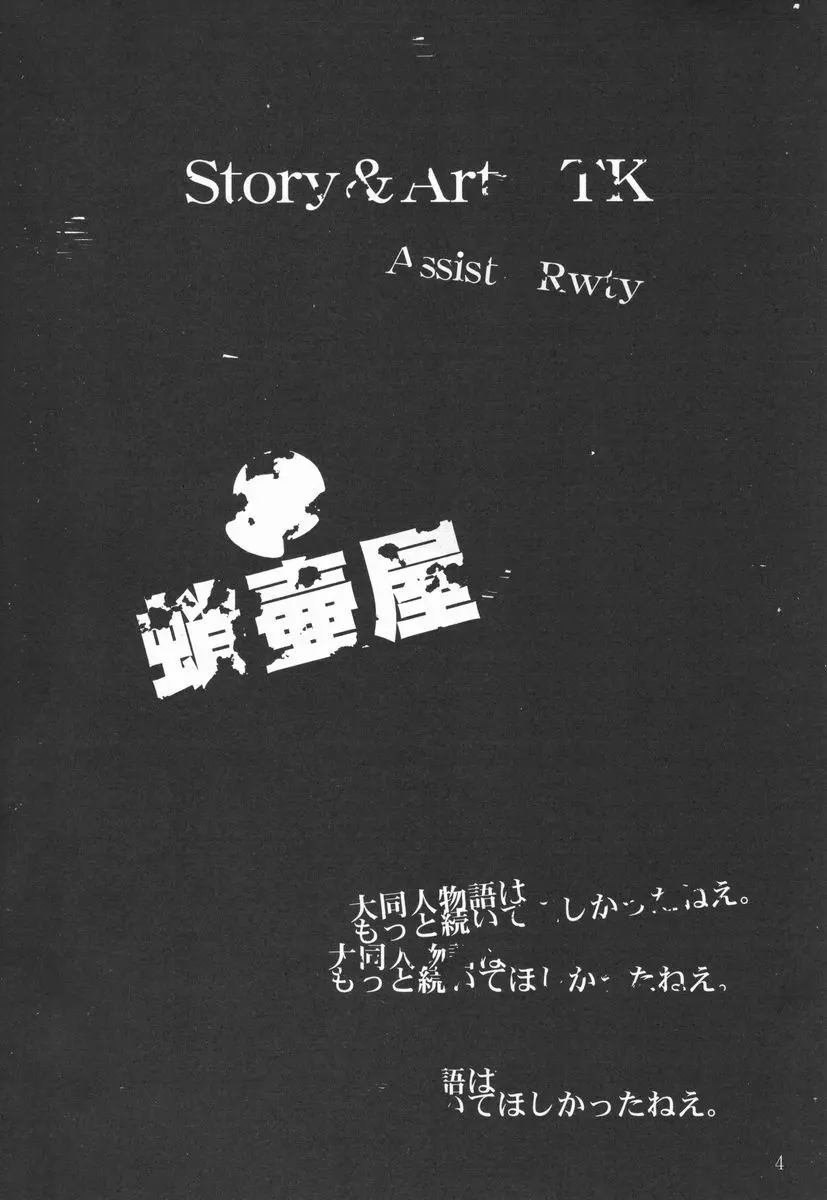 Story & Art TK
Assist Rwty
蛸壷屋
大同人物語は
もっと続いてほしかったねえ。
大同人物語は
もっと続いてほしかったねえ。
語は
いてほしかったねえ。
4